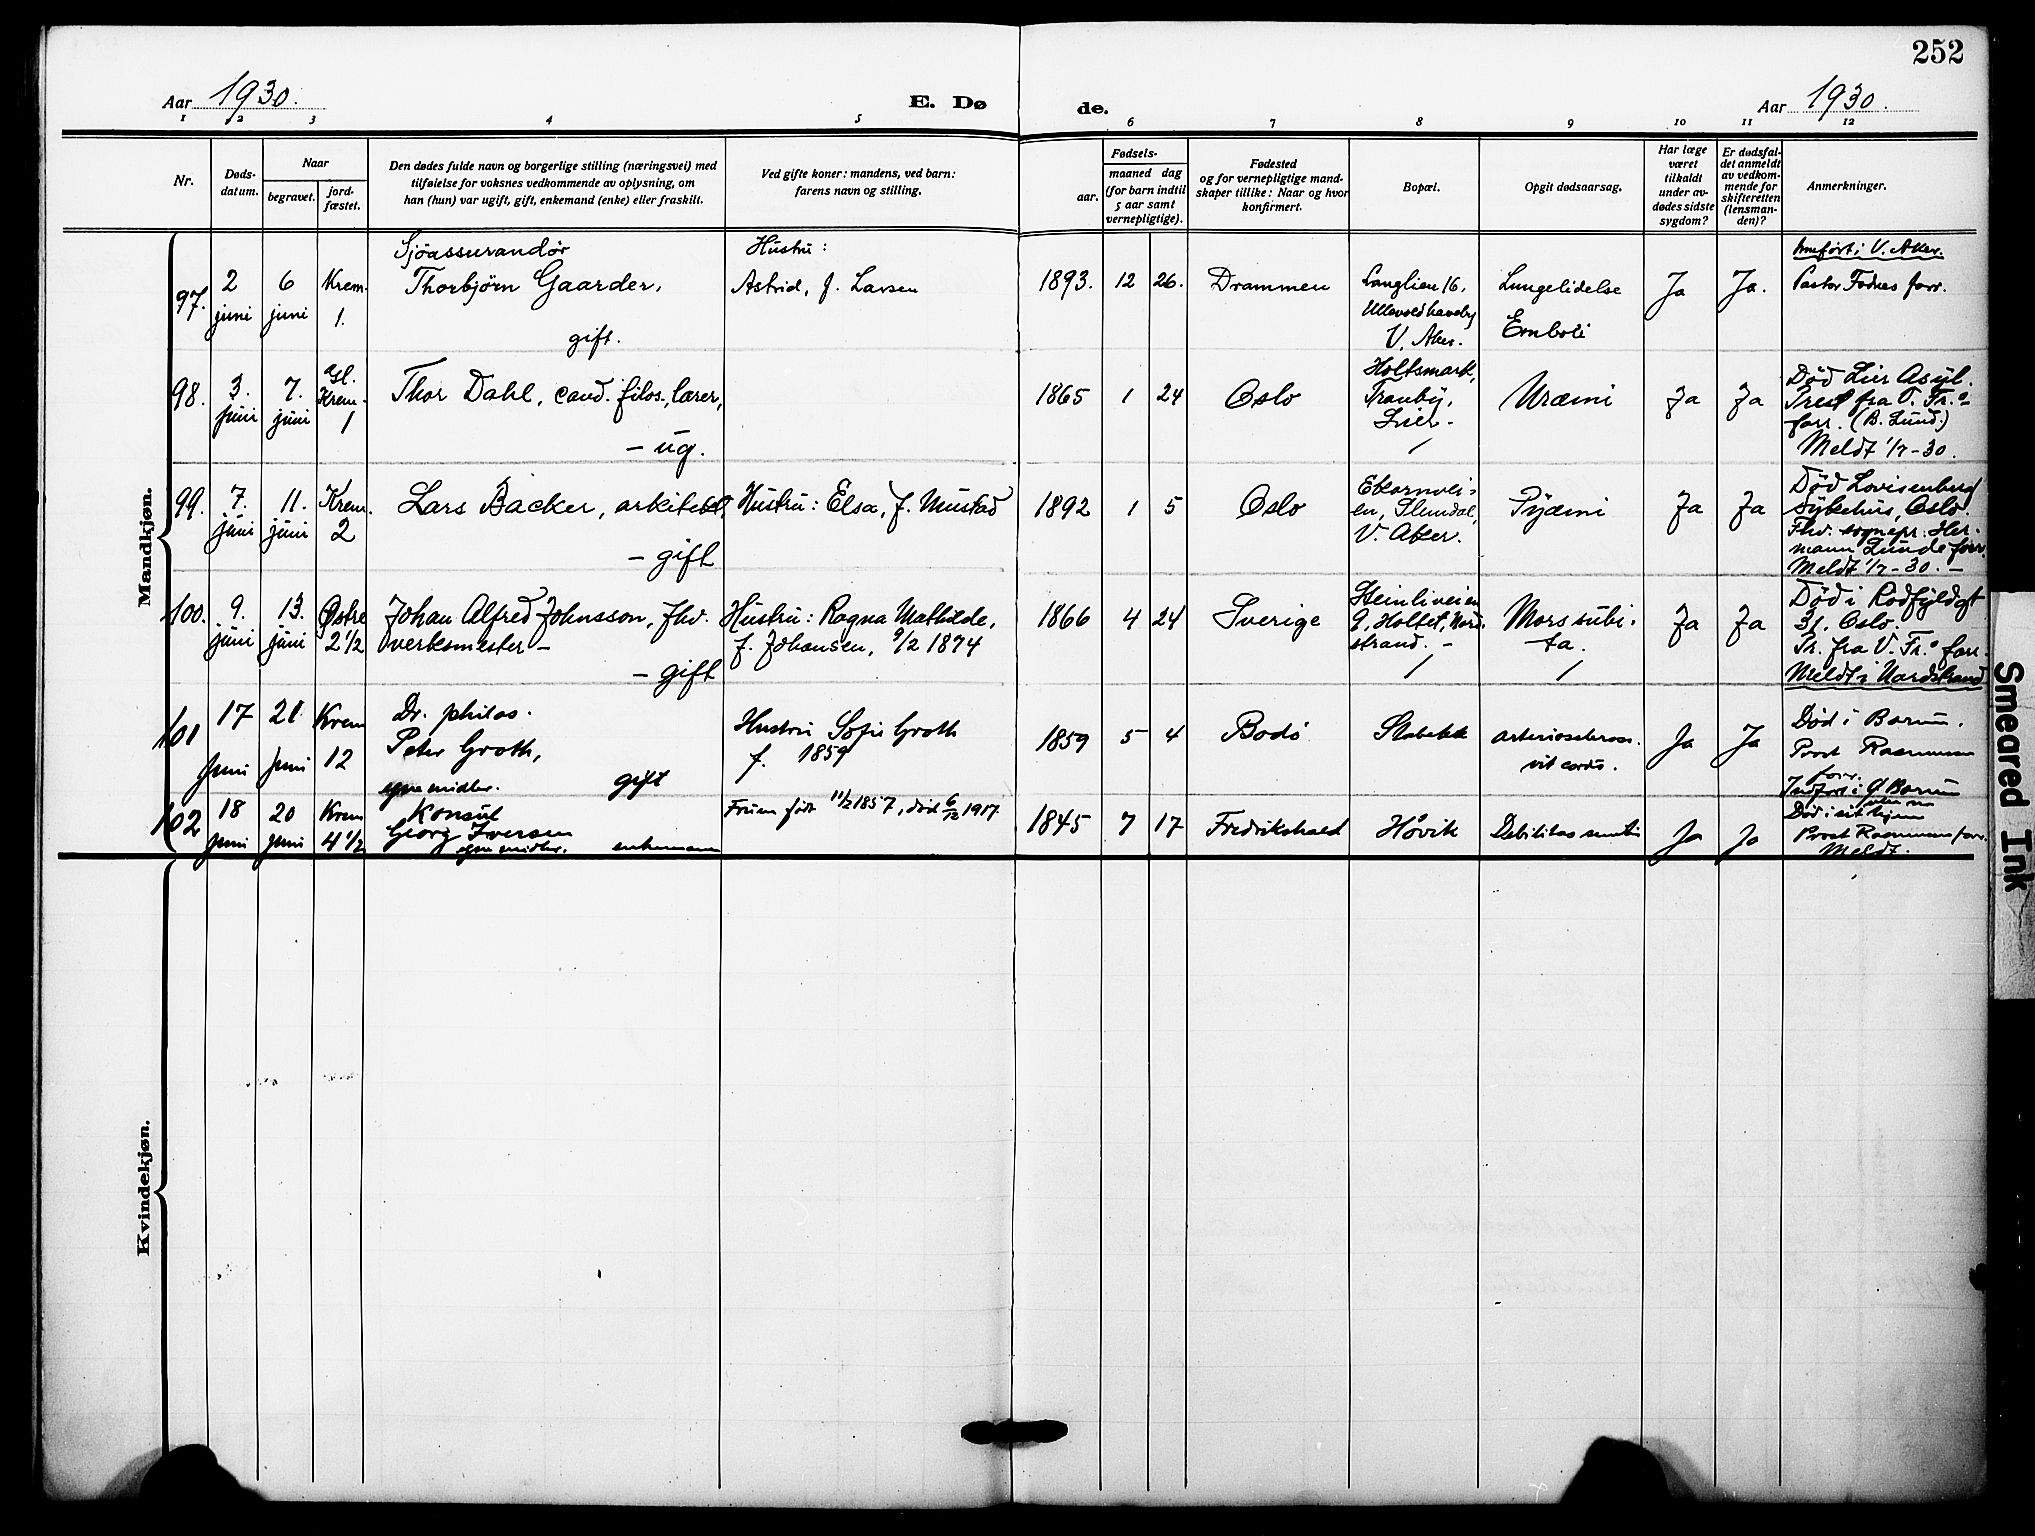 252
Aar 1930. E. Dø de. Aar 1930.
1 2 3 4 5 6 7 8 9 10 11 12
Nr.
Døds-
datum.
Naar
begravet.
jord-
fæstet.
Den dødes fulde navn og borgerlige stilling (næringsvei) med
tilføielse for voksnes vedkommende av oplysning, om
han (hun) var ugift, gift, enkemand (enke) eller fraskilt.
Ved gifte koner: mandens, ved barn:
farens navn og stilling.
Fødsels-
aar.
maaned dag
(for barn indtil
5 aar samt
vernepligtige).
Fødested
og for vernepligtige mand-
skaper tillike: Naar og hvor
konfirmert.
Bopæl.
Opgit dødsaarsag.
Har læge
været
tilkaldt
under av-
dødes sidste
sygdom?
Er dødsfal-
det anmeldt
av vedkom-
mende for
skifteretten
(lensman-
den)?
Anmerkninger.
Mandkjøn.
97.
2
juni
6
juni
Krem.
1.
Sjöassurandør
Thorbjörn Gaarder,
gift.
Hustru:
Astrid, f. Larsen
1893. 12 26.
Drammen
Langlien 16,
Ullevold haveby
V. Aker.
Lungelidelse
Emboli
Ja
Ja.
Innført i V. Aker.
Pastor Fodnes forr.
98.
3.
juni
7.
juni
Gl.
Krem.
1
Thor Dahl, cand. filos., lærer,
- ug.
1865 1 24
Oslo
Holtsmark,
Tranby,
Lier -
Uræmi
Ja
Ja
Død Lier Asyl.
Prest fra V. Tr.
forr. (B. Lund.)
Meldt 1/7-30.
99.
7.
juni
11.
juni
Krem.
2
Lars Backer, arkitekt,
- gift
Hustru: Elsa, f. Mustad
1892 1 5
Oslo
Ekornvei-
en, Slemdal,
V. Aker.
Pyæmi
Ja
Ja
Død Lovisenberg
Sykehus, Oslo.
Fhv. sognepr. Her-
mann Lunde forr.
Meldt 1/7-30. -
100.
9.
juni
13.
juni
Østre
2 1/2
Johan Alfred Johnsson, fhv.
verksmester -
- gift
Hustru: Ragna Mathilde,
f. Johansen, 9/2 1874
1866 4 24
Sverige
Steinliveien
9, Holtet, Nord-
strand. -
Mors subi-
ta.
Ja
Ja
Død i Rodfyldgt
31, Oslo.
Pr. fra V. Tr. forr.
Meldt i Nordstrand
101
17
juni
21
juni
Krem
12
Dr. philos.
Peter Groth,
egne midler. gift
Hustru Sofie Groth
f. 1859
1859 5 4
Bodö
Stabekk
arterioscleros.
vit cordis.
Ja
Ja
Død i Bærum.
Prost Rasmussen
forr.
Indført i Bærum
102
18
juni
20
juni
Krem
4 1/2
Konsul
Georg Iversen
egne midler. enkemann
Fruen født 11/2 1857, død 6/2 1917
1845 7 17
Fredrikshald
Høvik
Debilitas senilis
Ja
Ja
Død i sit hjem
Prost Rasmussen forr.
Meldt.
Kvindekjøn.
Smeared Ink